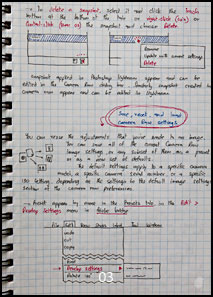 → To Delete a snapshot, select it and click the Trash
button at the bottom of the tab, or right-click (win) or
Control-click (Mac OS) the snapshot and choose Delete.
Rename
Update with current settings
Delete
snapshot applied in Photoshop Lightroom appear and can be
edited in the Camera Raw dialog box. Similarly snapshot created in
Camera Raw appear and can be edited in Lightroom.
Save, reset, and load
Camera Raw settings
You can reuse the adjustments that you've made to an image.
You can save all of the current Camera Raw
image settings, or any subset of them as a preset
or as a new set of defaults.
The default settings apply to a specific camera
model, a specific camera serial number, or a specific
ISO setting, depending on the settings in the default image settings
section of the camera Raw preferences.
→ Preset appears by name in the Presets tab, in the Edit >
Develop Settings menu in Adobe Bridge
File Edit View Stacks Label Tool Window
undo
cut
copy
find
Develop Settings
Rotate 180°
03